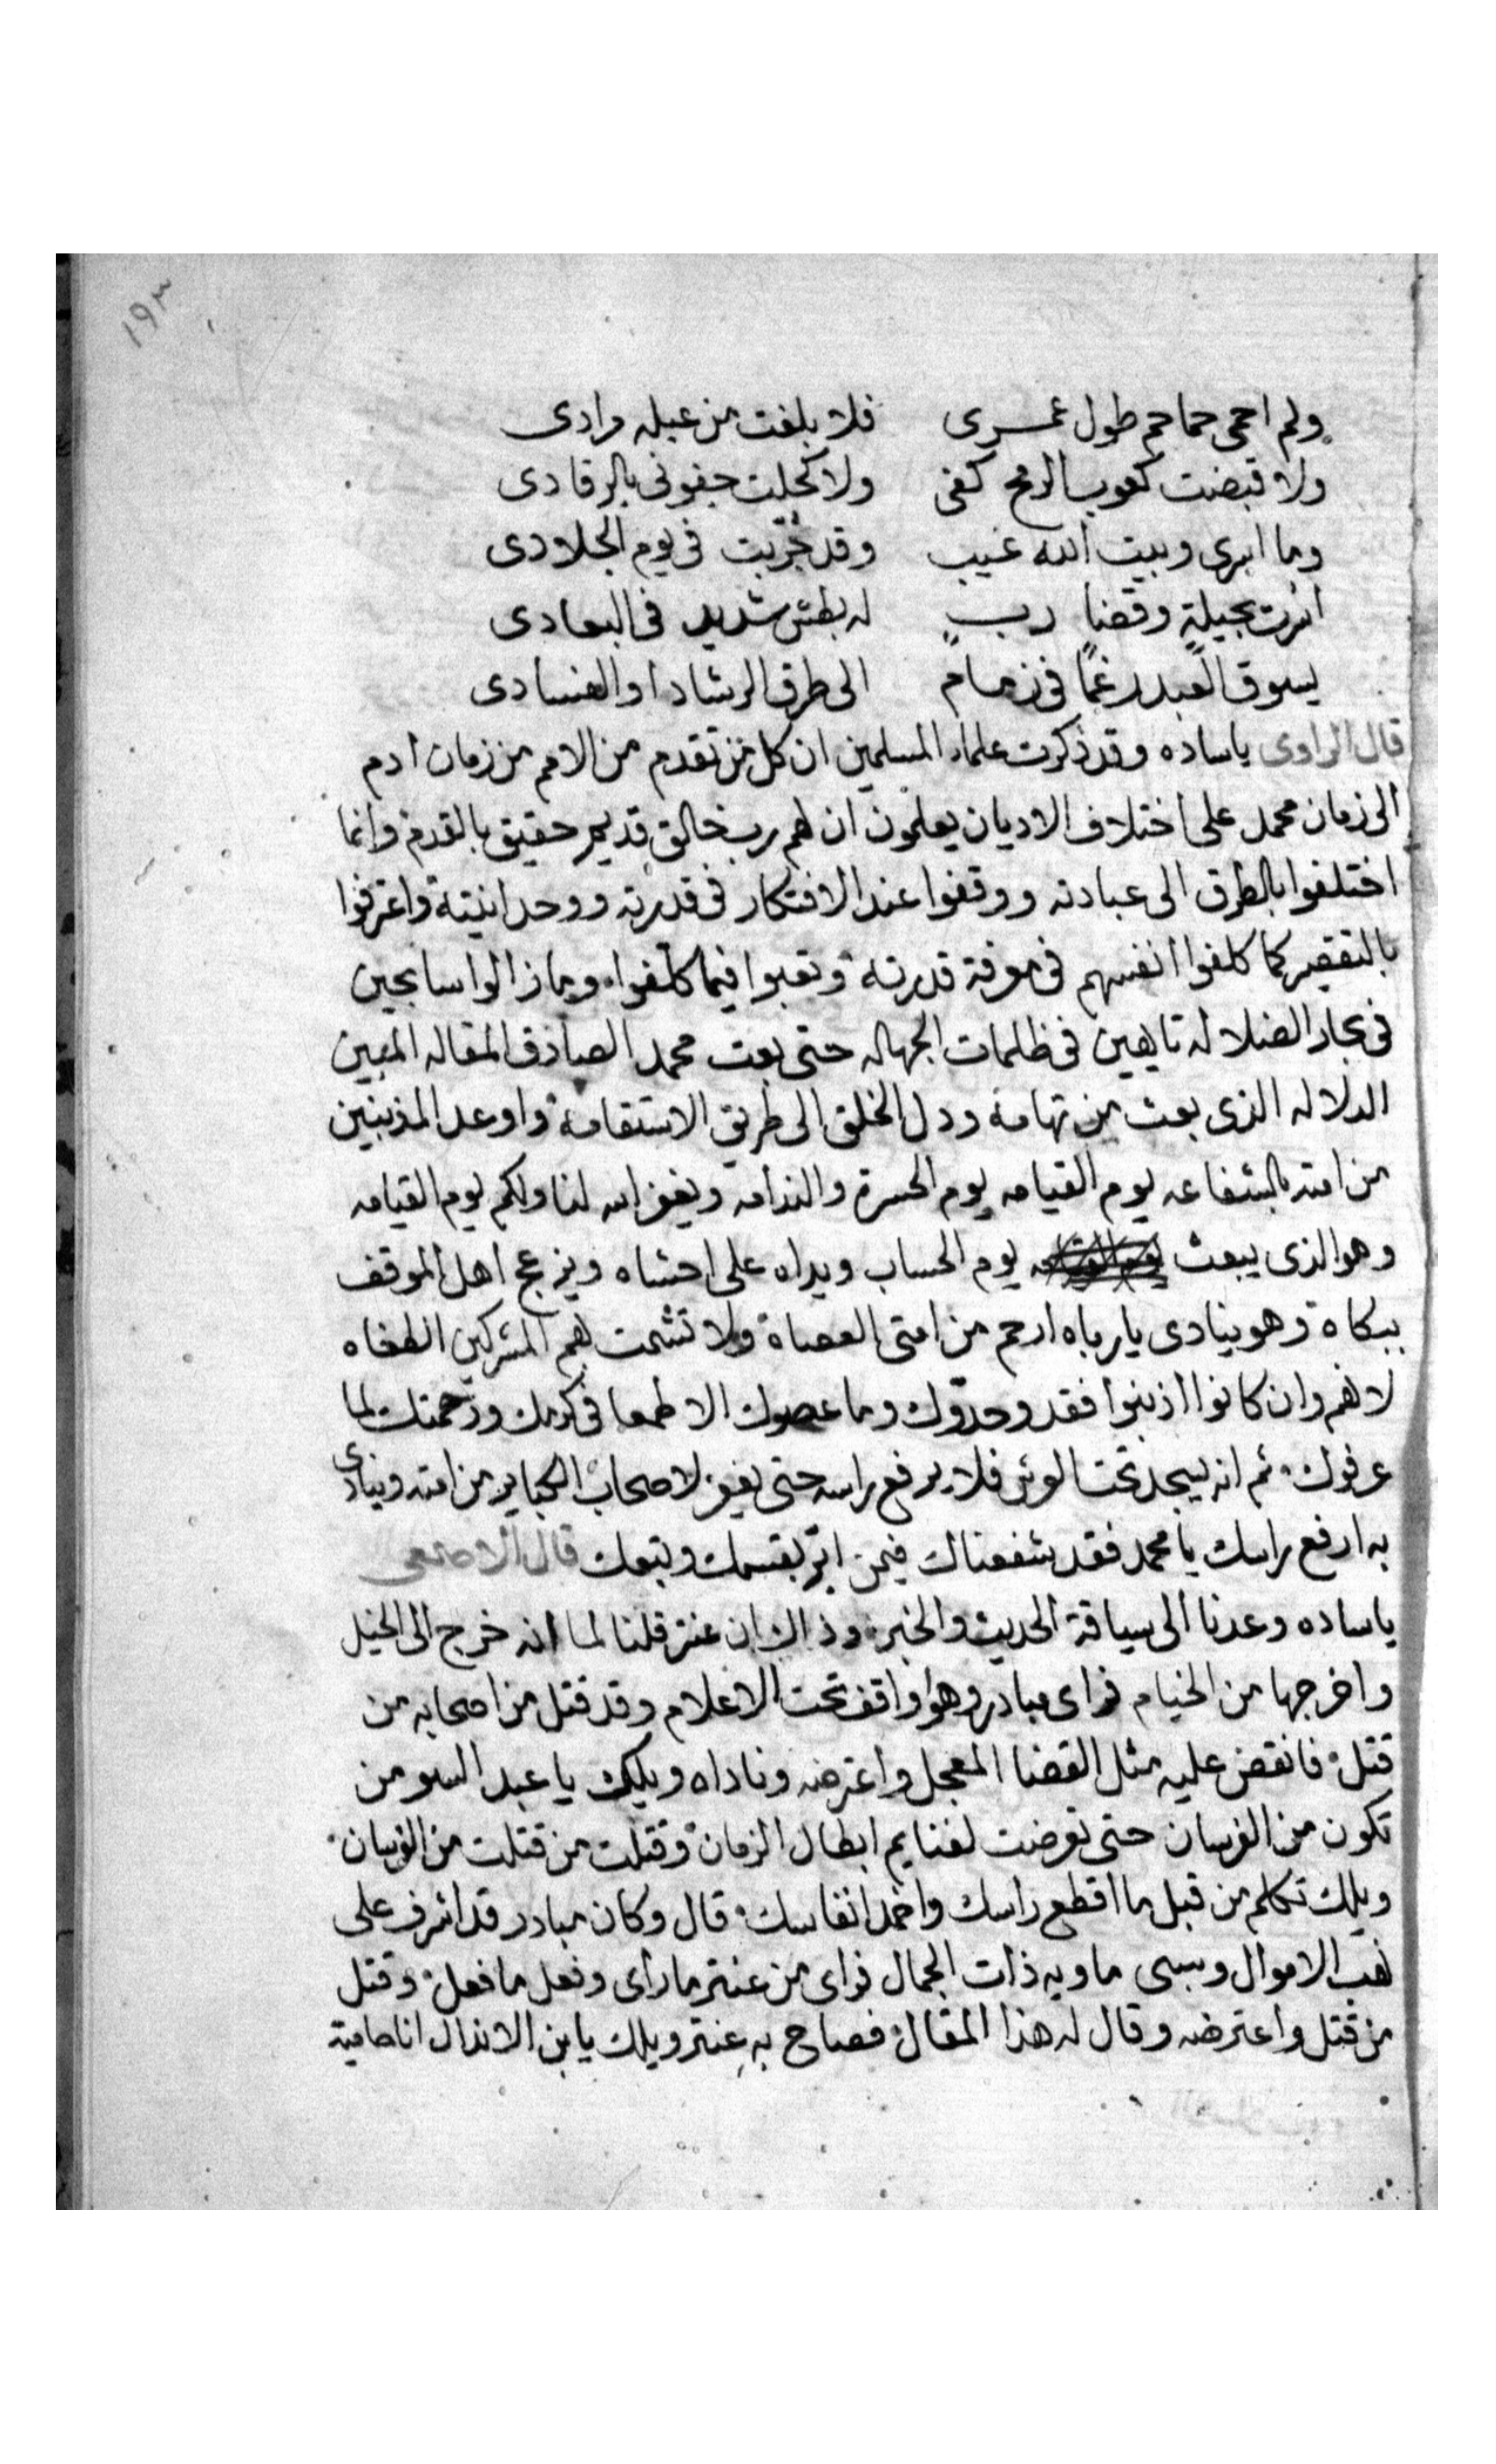 ١٩٣
ولم احمى حماحم طول عمرى فلا بلغت من عبله مرادى
ولا قبضت كعوب الرمح كفى ولا كحلت جفونى بالرقادى
وما ابرى وبيت الله غيب وقد جُرّبت فى يوم الجلادى
اثرت بجيلةٍ وقضا ربٍ له بطش شديد فى البعادى
يسوق العبد رغمًا فى زمام الى طرق الرشاد او الفسادى
قال الراوى ياساده وقد ذكرت علماء المسلمين ان كل من تقدم من الامم من زمان ادم
الى زمان محمد على اختلاف الاديان يعلمون ان لهم رب خالق قديم حقيق بالقدم وانما
اختلفوا بالطرق الى عبادته ووقفوا عند الافتكار فى قدرته ووحدانيتة واعترفوا
بالتقصير كما كلفوا انفسهم فى معرفة قدرته وتعبوا فيما كلفوا وما زالوا سابحين
فى بحار الضلاله تايهين فى ظلمات الجهاله حتى بعث محمد الصادق المقاله المبين
الدلاله الذى بعث من تهامة ودل الخلق الى طريق الاستقامة واوعد المذنبين
من امته بالشفاعه يوم القيامه يوم الحسرة والندامه ويغفر الله لنا ولكم يوم القيامه
وهو الذى يبعث يوم الحساب ويداه على احشاه وينزعج اهل الموقف
ببكاة وهو ينادى يارباه ارحم من امتى العصاة ولا تشمت بهم المشركين الطغاه
لانهم وان كانوا اذنبوا فقد وحدّوك وما عصوك الا طمعا فى كرمك ورحمتك لما
عرفوك ثم انه يسجد تحت العرش فلا يرفع راسه حتى يغفر لاصحاب الكباير من امته وينادى
به ارفع راسك يا محمد فقد شفعناك فيمن ابرّ بقسمك وتبعك قال الاصمعى
ياساده وعدنا الى سياقة الحديث والخبر وذالك ان عنتر قلنا لما انه خرج الى الخيل
واخرجها من الخيام فراى مبادر وهو واقف تحت الاعلام وقد قتل من اصحابه من
قتل فانقض عليه مثل القضا المعجل واعترضه وناداه ويلك يا عبد السو من
تكون من الفرسان حتى تعرضت لغنايم ابطال الزمان وقتلت من قتلت من الفرسان
ويلك تكلم من قبل ما اقطع راسك واخمد انفاسك قال وكان مبادر قد اشرف على
نهب الاموال وسبى ماويه ذات الجمال فراى من عنتر ما راى وفعل ما فعل وقتل
من قتل واعترضه وقال له هذا المقال فصاح به عنتر ويلك يا بن الاندال انا حامية